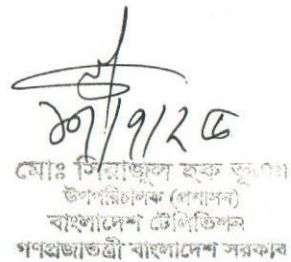 মোঃ সিরাজুল হক
উপপরিচালক (প্রশাসন)
বাংলাদেশ টেলিভিশন
গণপ্রজাতন্ত্রী বাংলাদেশ সরকার